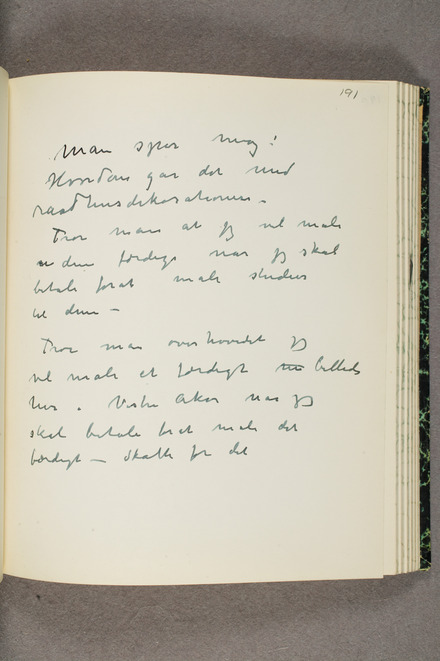 191
Man spør mig:
Hvordan gar det med
raadhusdekorationen –
Tror man at jeg vil male
dem færdige nar jeg skal
betale forat male studier
til dem –
Tror man overhovedet jeg
vil male et færdigt billede
her. Vestre Aker nar jeg
skal betale forat male det
færdigt – skatte for det